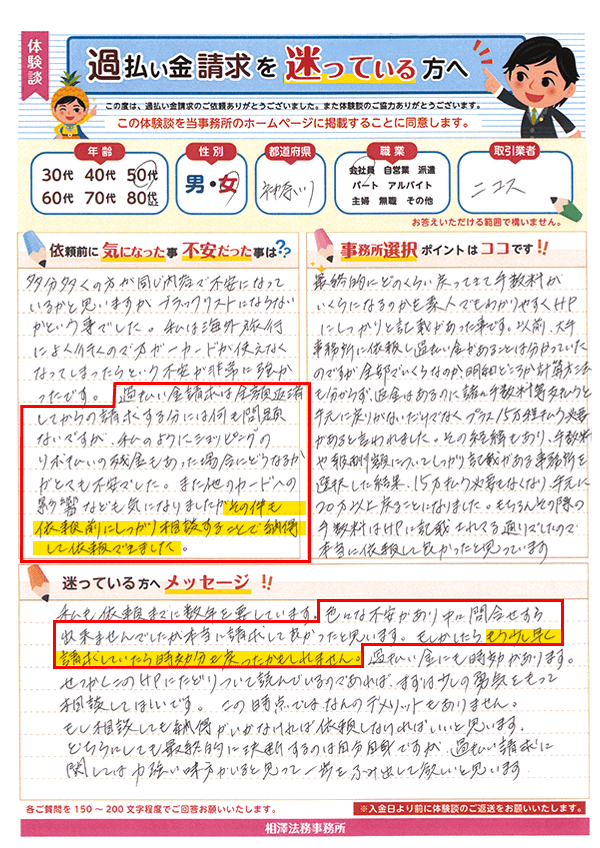 体験談
過払い金請求を迷っている方へ
この度は、過払い金請求のご依頼ありがとうございました。また体験談のご協力ありがとうございます。
この体験談を当事務所のホームページに掲載することに同意します。
年齢
30代 40代 50代
60代 70代 80代
性別
男・女
都道府県
神奈川
職業
会社員 自営業 派遣
パート アルバイト
主婦 無職 その他
取引業者
ニコス
お答えいただける範囲で構いません。
依頼前に気になった事 不安だった事は??
多分多くの方が同じ内容で不安になって
いるかと思いますが ブラックリストにならない
かという事でした。私は海外旅行
によく行くので万が一カードが使えなく
なってしまったらという不安が非常に強か
ったです。過払い金請求は全額返済
してからの請求する分には何も問題
ないですが、私のようにショッピングの
リボ払いの残金もあった場合にどうなるか
がとても不安でした。また他のカードへの
影響なども気になりましたがその件も
依頼前にしっかり相談することで納得
して依頼できました。
事務所選択ポイントはココです!!
最終的にどのくらい戻ってきて手数料が
いくらになるのかを素人でもわかりやすくHP
にしっかりと記載があった事です。以前、大手
事務所に依頼し過払い金があることは分かっていた
のですが全部でいくらなのか、明細もどころか計算方法
も分からず、返金はあるのに諸々手数料等支払うと
手元に戻りがないだけでなくプラス15万程払う必要
があると言われました。その経緯もあり、手数料
や報酬額についてしっかり記載がある事務所を
選択した結果、15万払う必要もなくなり、手元に
20万以上戻ることになりました。もちろんその際の
手数料はHPに記載されてる通りでしたので
本当に依頼して良かったと思っています
迷っている方へメッセージ!!
私も依頼までに数年を要しています。色々な不安があり中々問合せする
出来ませんでしたが本当に請求して良かったと思います。もしかしたらもう少し早く
請求していたら時効分も戻ったかもしれません。過払い金にも時効があります。
せっかくこのHPにたどりついて読んでいるのであれば、まずは少しの勇気をもって
相談してほしいです。この時点ではなんのデメリットもありません。
もし相談しても納得がいかなければ依頼しなければいいと思います。
どちらにしても最終的に決断するのは自分自身ですが、過払い請求に
関しては力強い味方がいると思って一歩をふみ出して欲しいと思います
各ご質問を150～200文字程度でご回答お願いいたします。
※入金日より前に体験談のご返送をお願いいたします。
相澤法務事務所